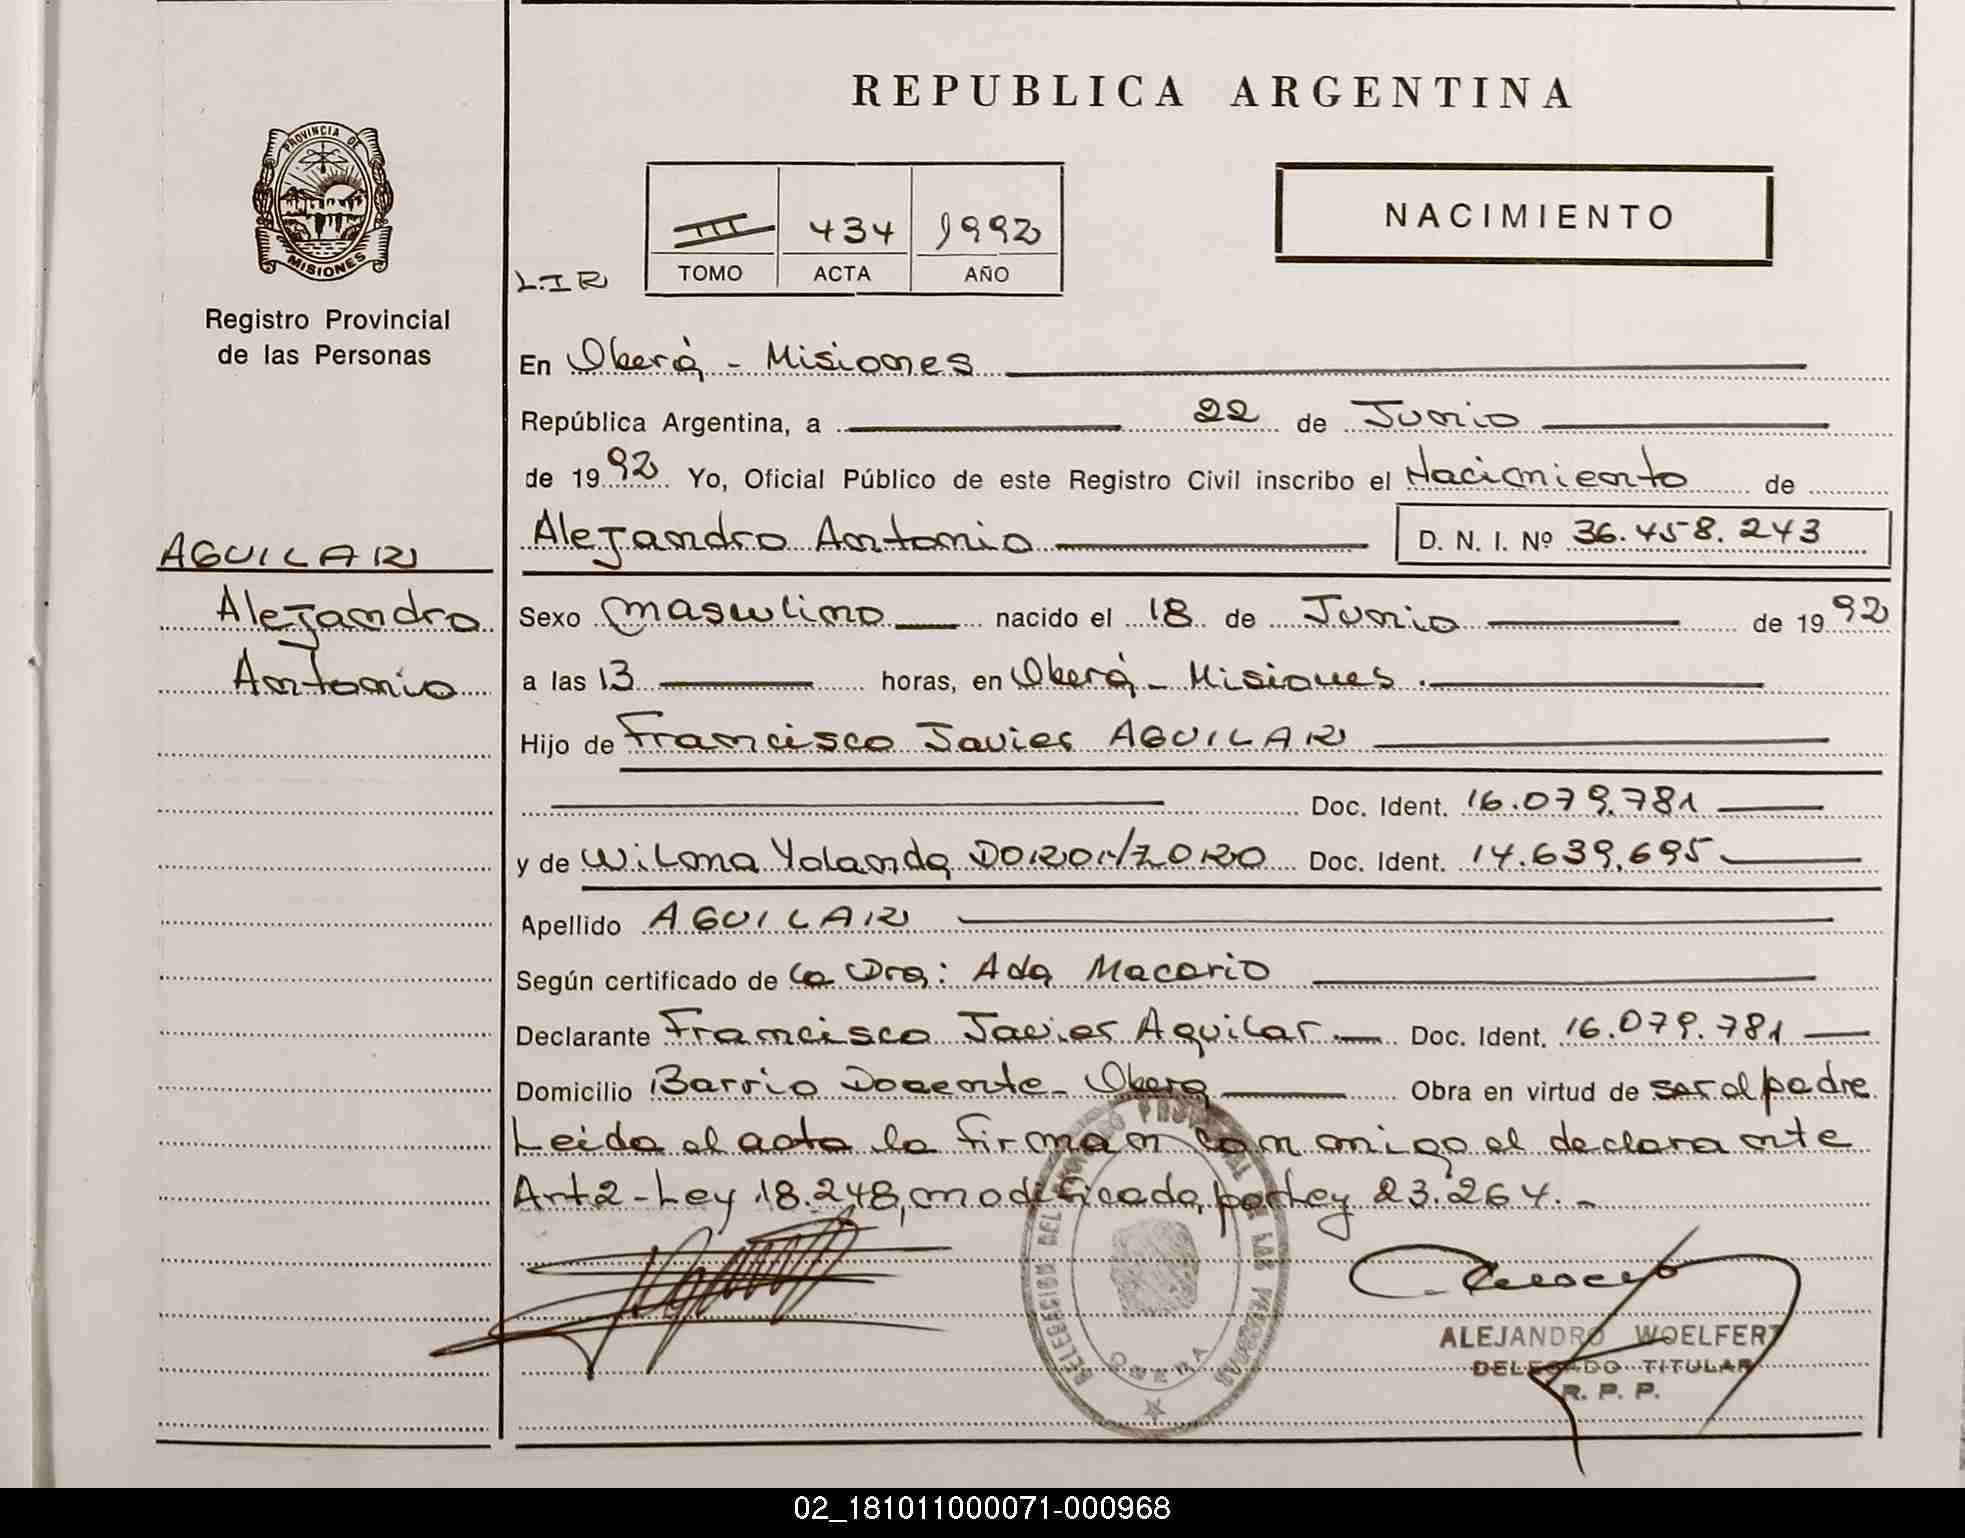 REPUBLICA ARGENTINA
PROVINCIA DE
MISIONES
Registro Provincial
de las Personas
NACIMIENTO
III 434 1992
TOMO ACTA AÑO
L.I R
En Oberá - Misiones
República Argentina, a 22 de Junio
de 1992 Yo, Oficial Público de este Registro Civil inscribo el Nacimiento de
Alejandro Antonio D. N. I. Nº 36.458.243
AGUILAR
Alejandro
Antonio
Sexo masculino nacido el 18 de Junio de 1992
a las 13 horas, en Oberá - Misiones.
Hijo de Francisco Javier AGUILAR
Doc. Ident. 16.079.781
y de Wilma Yolanda Doc. Ident. 14.639.695
Apellido AGUILAR
Según certificado de la Dra: Ada Macario
Declarante Francisco Javier Aguilar Doc. Ident. 16.079.781
Domicilio Barrio Docente - Obera Obra en virtud de ser el padre
Leida el acta la firman conmigo el declarante
Art 2 - Ley 18.248, modificada, por Ley 23.264. -
DELEGACION DEL REGISTRO PROVINCIAL DE LAS PERSONAS
OBERA
ALEJANDRO WOELFERT
DELEGADO TITULAR
R. P. P.
02_181011000071-000968